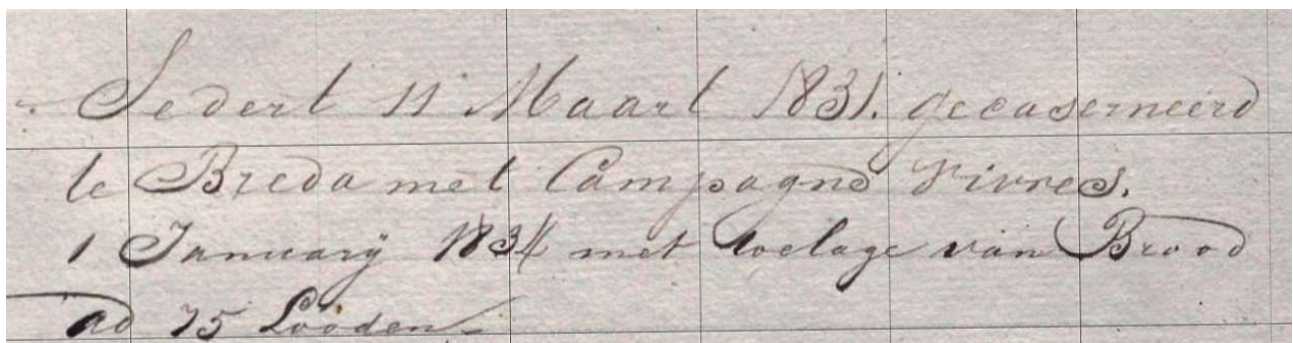 Sedert 11 Maart 1831. gecaserneerd
te Breda met Campagne Vivres.
1 January 1834 met toelage van Brood
ad 75 Looden